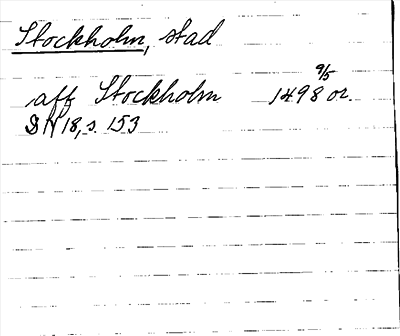 Stockholm, stad
aff Stockholm 1498 9/5 or.
DN 18, s. 153